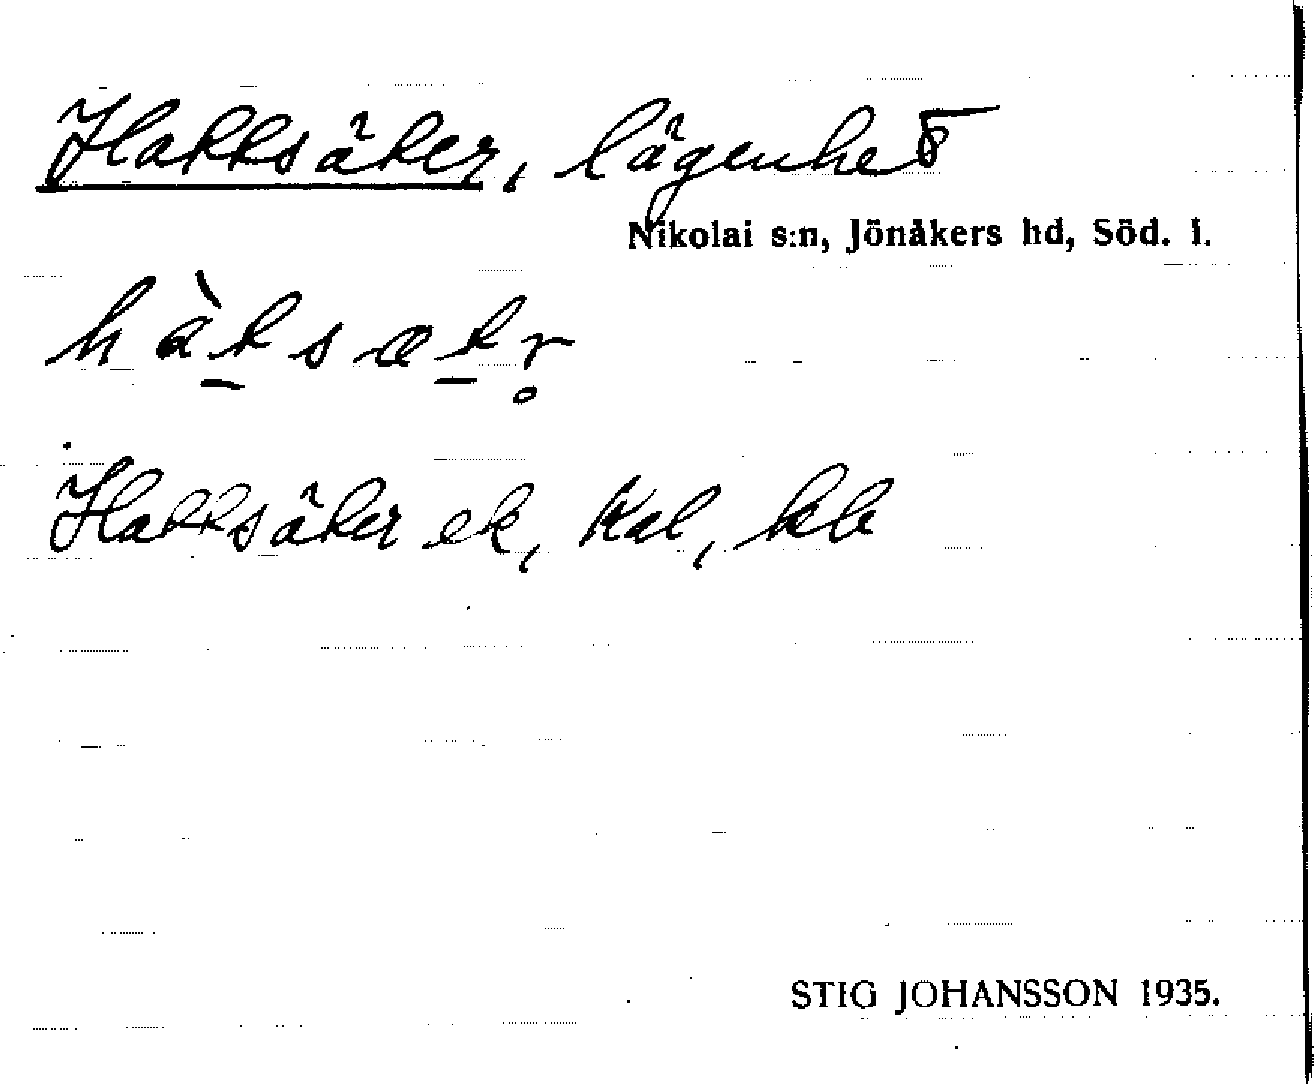 Hakksäker, lägenhet
Nikolai s:n, Jönåkers hd, Söd. l.
hàksækr̥
Hakksäker ek, Kal, kb
STIG JOHANSSON 1935.